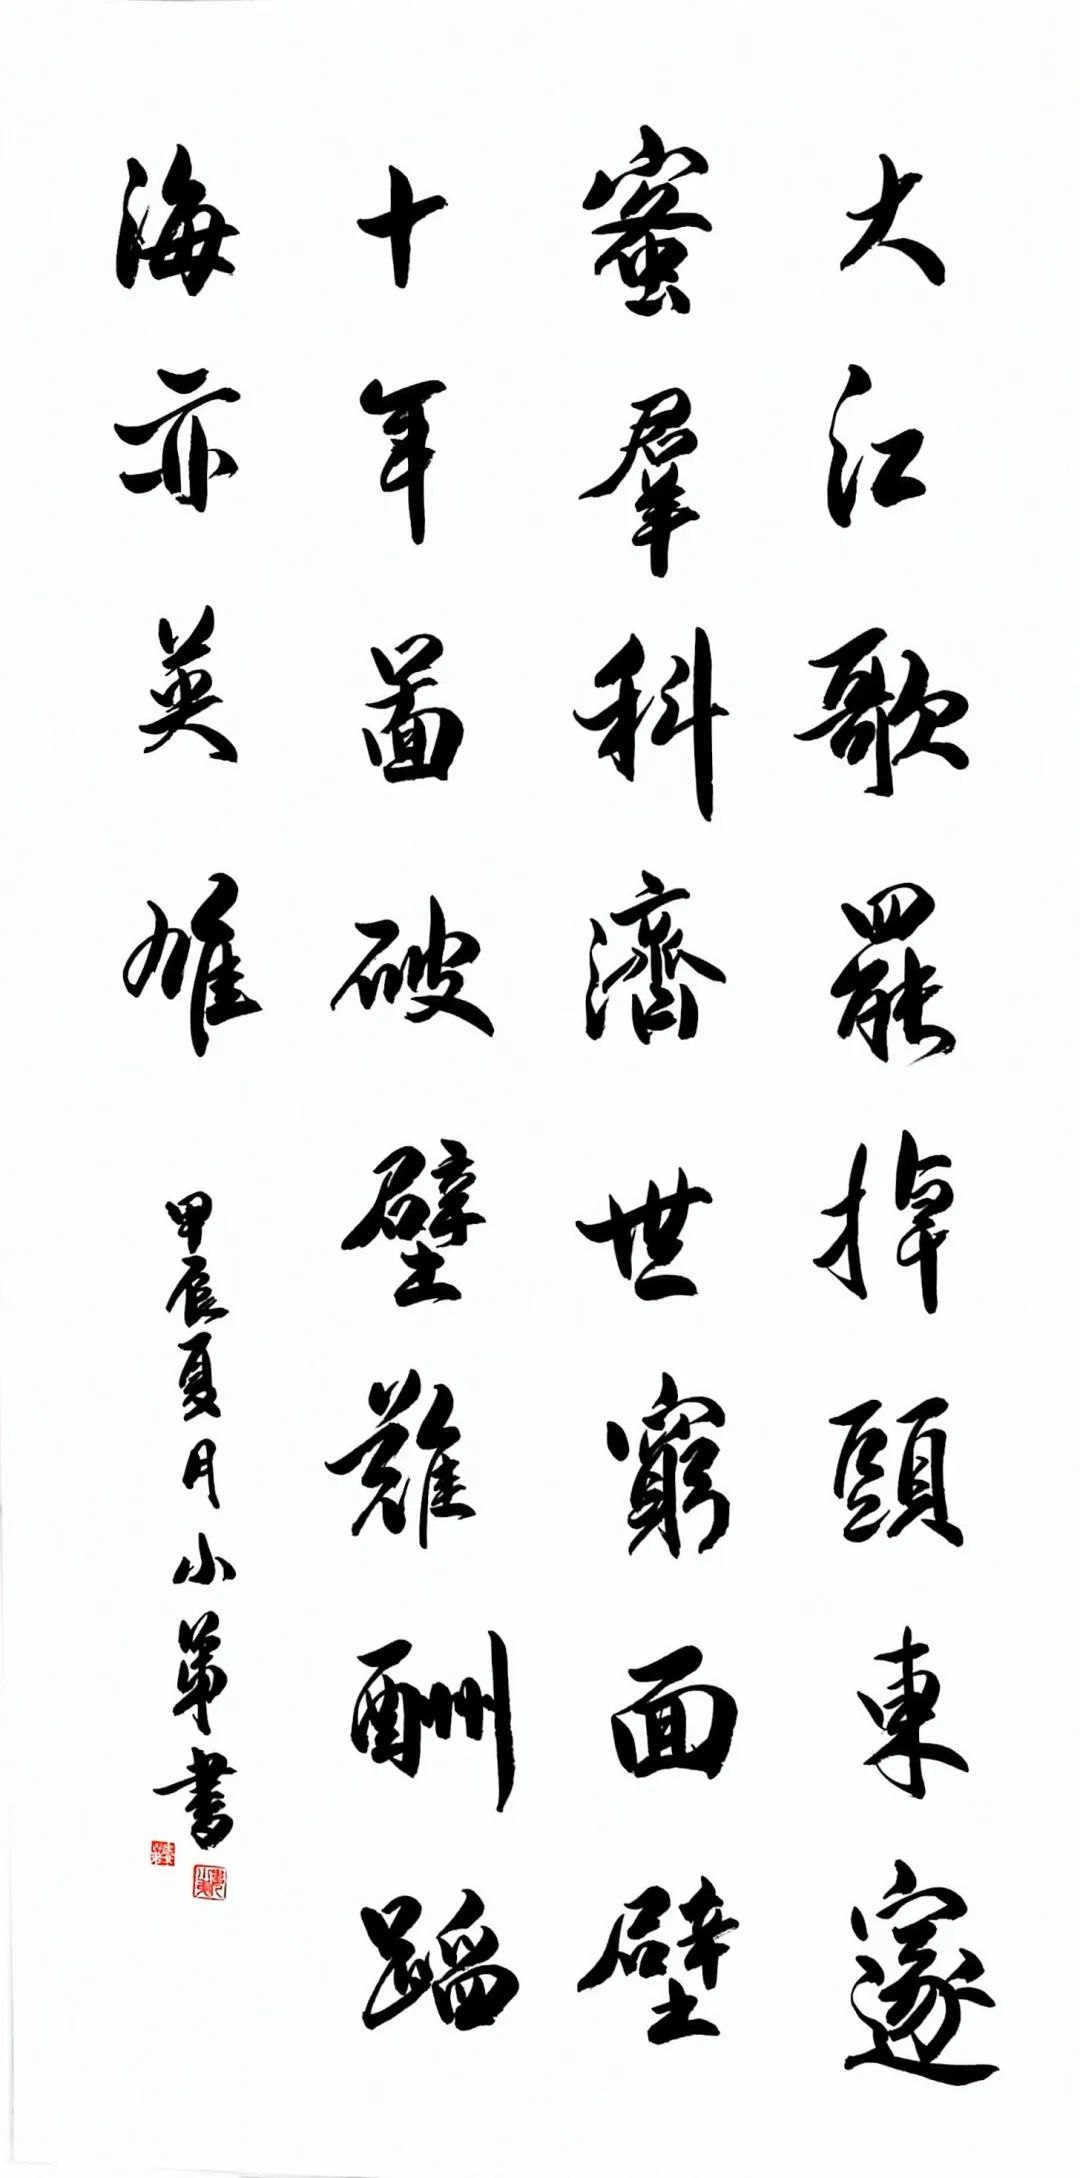 大江歌罷掉頭東邃
蜜羣科濟世窮面壁
十年啚破壁難酬蹈
海亦英雄
甲辰夏月小第書